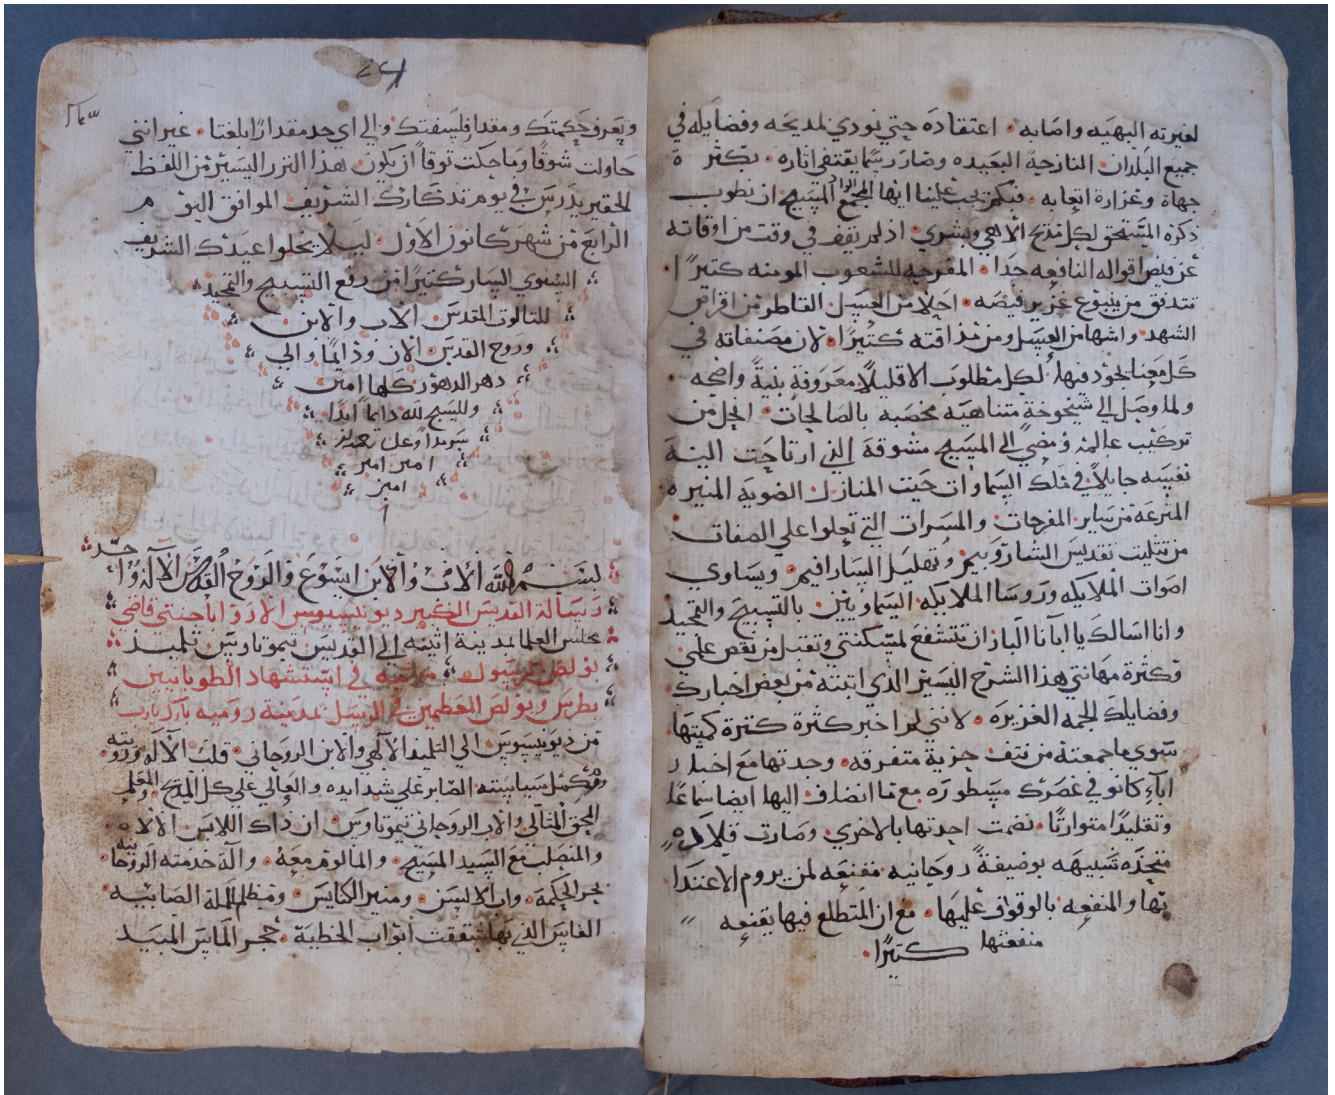 لغيرته البهيه واصابه اعتقاده حتي نودي لمديحه وفضايله في
جميع البلدان النازحة البعيده وصار رسما يقتفي اثاره بكثرة
جهاة وغزارة اتعابه فبكم يجب علينا ايها المجمع المسيح ان نطوب
ذكره المستحق لكل مدح الاهي وبشري اذ لم نقف في وقت من اوقاته
عن فيض اقواله النافعه جدا المفرحه للشعوب المومنه كتيرا
تتدفق من ينبوع غزير فيضه احلا من العسل القاطر من اقراص
الشهد واشها من العسل ومن مذاقته كثيرا لان مصنفاته في
كل معنا نجود فيها لكل مطلوب الا قليلا معروفة بنية واضحه
ولما وصل الي شيخوخة متناهيه مخصبه بالصالحات انحل من
تركيب عالمه ومضي الي المسيح مشوقة الذي ارتاحت اليه
نفسه جايلا في فلك السماوات حيت المنازل الضوية المنيره
المترعه من ساير المفرحات والمسرات التي تعلوا علي الصفات
من تتليت تقديس الشاروبيم وتهليل السارافيم ويساوي
اصوات الملايكه وروسا الملايكه السماويين بالتسبيح والتمجيد
وانا اسالك يا ابانا البار ان تتشفع لمسكنتي وتقبل من نقص علمي
وكثرة مهانتي هذا الشرح اليسير الذي اتبته من بعض اخبارك
وفضايلك الجمه الغزيره لانني لم اخبر كثرة كترة كميتها
سوي ما جمعته من نتف جزية متفرقه وجدتها مع اخبار
اباء كانو في عصرك مسطوره مع ما انضاف اليها ايضا سماعا
وتقليدا متواترا نضمت احدتها بالاخري وصارت قلاده
متحده شبيهه بوضيفة روحانيه مقنعه لمن يروم الاعتدا
بها والمنفعه بالوقوف عليها مع ان المتطلع فيها يقنعه
منفعتها كتيرا
وتعرف حكمتك ومقدار فلسفتك والي اي حد مقدارا بلغتا غير انني
حاولت شوقا وما حكت توقا ان يكون هذا النزر اليسير من اللفظ
الحقير يدرس في يوم تدكارك الشريف الموافق اليوم
الرابع من شهر كانون الاول ليلا يخلوا عيدك الشريف
السنوي المبارك كتيرا من رفع التسبيح والتمجيد
للتالوت المقدس الاب والابن
وروح القدس الان ودايما والي
دهر الدهور كلها امين
وللسبح لله دايما ابدا
سرمدا وعلي
امين امين
امين
بسم الله الاب والابن ايسوع والروح القدس الاله واحد
رسالة القديس الكبير ديونيسيوس الاريوباجيتي قاضي
مجلس العلما بمدينة اتينه الي القديس تيموتاوس تلميد
بولص الرسول في استشهاد الطوبانيين
بطرس وبولص المعظمين في الرسل بمدينة روميه بارك يارب
من ديونيسيوس الي التلميذ الالهي والابن الروحاني قلت الاله وروو
وتكميل سياسته الصابر علي شدايده والعالي علي كل المديح والمعلم
المحق المتالي والاب الروحاني تيموتاوس ان داك اللابس الالاه
والمنصلب مع السيد المسيح والمالوم معه والة خدمته الروحانيه
بحر الحكمة واب الالسن ومنير الكنايس ومبطل الملة الصابيه
الفاس الذي بها شققت ابواب الخطية حجر الماس المبيد